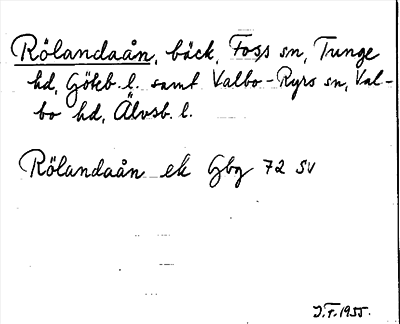 Rölandaån, bäck, Foss sn, Tunge
hd, Göteb. l. samt Valbo-Ryrs sn, Val-
bo hd, Älvsb. l.
Rölandaån ek Gbg 72 SV
J.F. 1955.